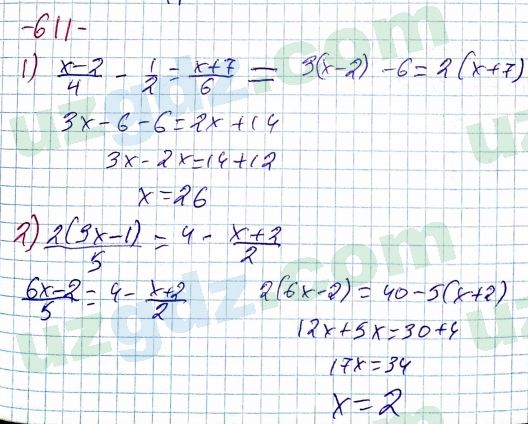 -611-
1) (x-2)/4 - 1/2 = (x+7)/6 = 3(x-2) - 6 = 2(x+7)
3x - 6 - 6 = 2x + 14
3x - 2x = 14 + 12
x = 26
2) 2(3x-1)/5 = 4 - (x+2)/2
(6x-2)/5 = 4 - (x+2)/2 2(6x-2) = 40 - 5(x+2)
12x + 5x = 30 + 4
17x = 34
x = 2
uzgdz.com